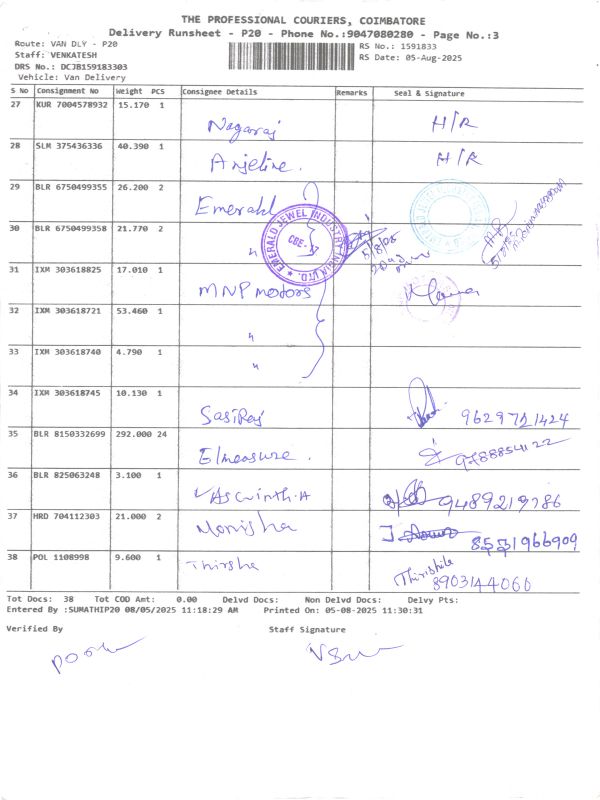 THE PROFESSIONAL COURIERS, COIMBATORE
Delivery Runsheet - P20 - Phone No.:9047080280 - Page No.:3
Route: VAN DLY - P20
RS No.: 1591833
Staff: VENKATESH
RS Date: 05-Aug-2025
DRS No.: DCJB159183303
Vehicle: Van Delivery
S No Consignment No Weight PCS Consignee Details Remarks Seal & Signature
27 KUR 7004578932 15.170 1 Nagaraj H/R
28 SLM 375436336 40.390 1 Anjeline. H/R
29 BLR 6750499355 26.200 2 Emerald
30 BLR 6750499358 21.770 2 "
EMERALD JEWEL INDUSTRY INDIA LTD.
CBE-17
5/8/25
31 IXM 303618825 17.010 1 MNP motors
32 IXM 303618721 53.460 1 "
33 IXM 303618740 4.790 1 "
34 IXM 303618745 10.130 1 SasiRaj 9629721424
35 BLR 8150332699 292.000 24 Elmeasure. 9788854122
36 BLR 825063248 3.100 1 Aswinth.A 9489219786
37 HRD 704112303 21.000 2 Monisha 8531966909
38 POL 1108998 9.600 1 Thirsha Thirishila 8903144060
Tot Docs: 38 Tot COD Amt: 0.00 Delvd Docs: Non Delvd Docs: Delvy Pts:
Entered By :SUMATHIP20 08/05/2025 11:18:29 AM Printed On: 05-08-2025 11:30:31
Verified By Staff Signature